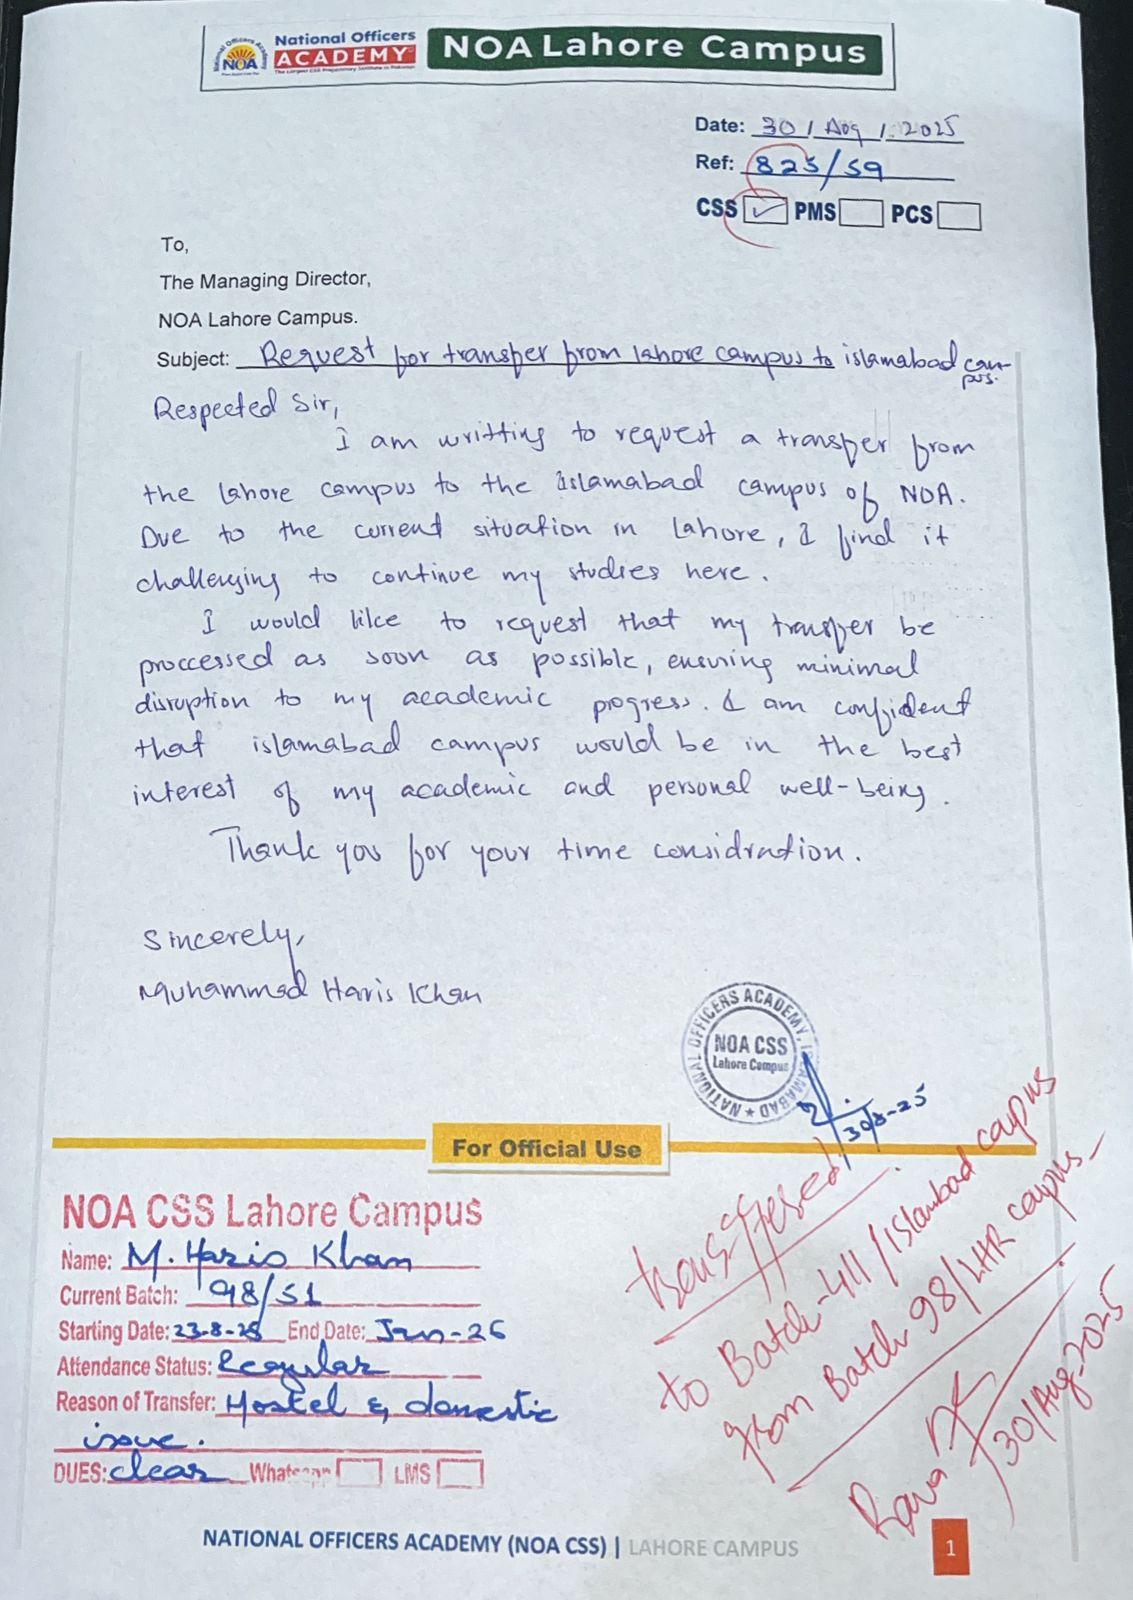 National Officers
ACADEMY
The Largest CSS Preparatory Institute in Pakistan
NOA
NOA Lahore Campus
Date: 30 / Aog / 2025
Ref: 825/59
CSS ✓ PMS PCS
To,
The Managing Director,
NOA Lahore Campus.
Subject: Request for transfer from lahore campus to islamabad cam-
pus.
Respected Sir,
I am writting to request a transfer from
the lahore campus to the islamabad campus of NOA.
Due to the current situation in Lahore, I find it
challenging to continue my studies here.
I would like to request that my transfer be
proccessed as soon as possible, ensuring minimal
disruption to my academic progress. I am confident
that islamabad campus would be in the best
interest of my academic and personal well-being.
Thank you for your time considration.
Sincerely,
Muhammad Haris Khan
NATIONAL OFFICERS ACADEMY, ISLAMABAD ★
NOA CSS
Lahore Campus
30/8-25
For Official Use
NOA CSS Lahore Campus
Name: M. Haris Khan
Current Batch: 98/51
Starting Date: 23-8-25 End Date: Jan-26
Attendance Status: Regular
Reason of Transfer: Hostel & domestic
issue.
DUES: clear Whatsapp LMS
transffered
to Batch-411/Islambad campus
from Batch 98/LHR campus
30/Aug-2025
NATIONAL OFFICERS ACADEMY (NOA CSS) | LAHORE CAMPUS
1